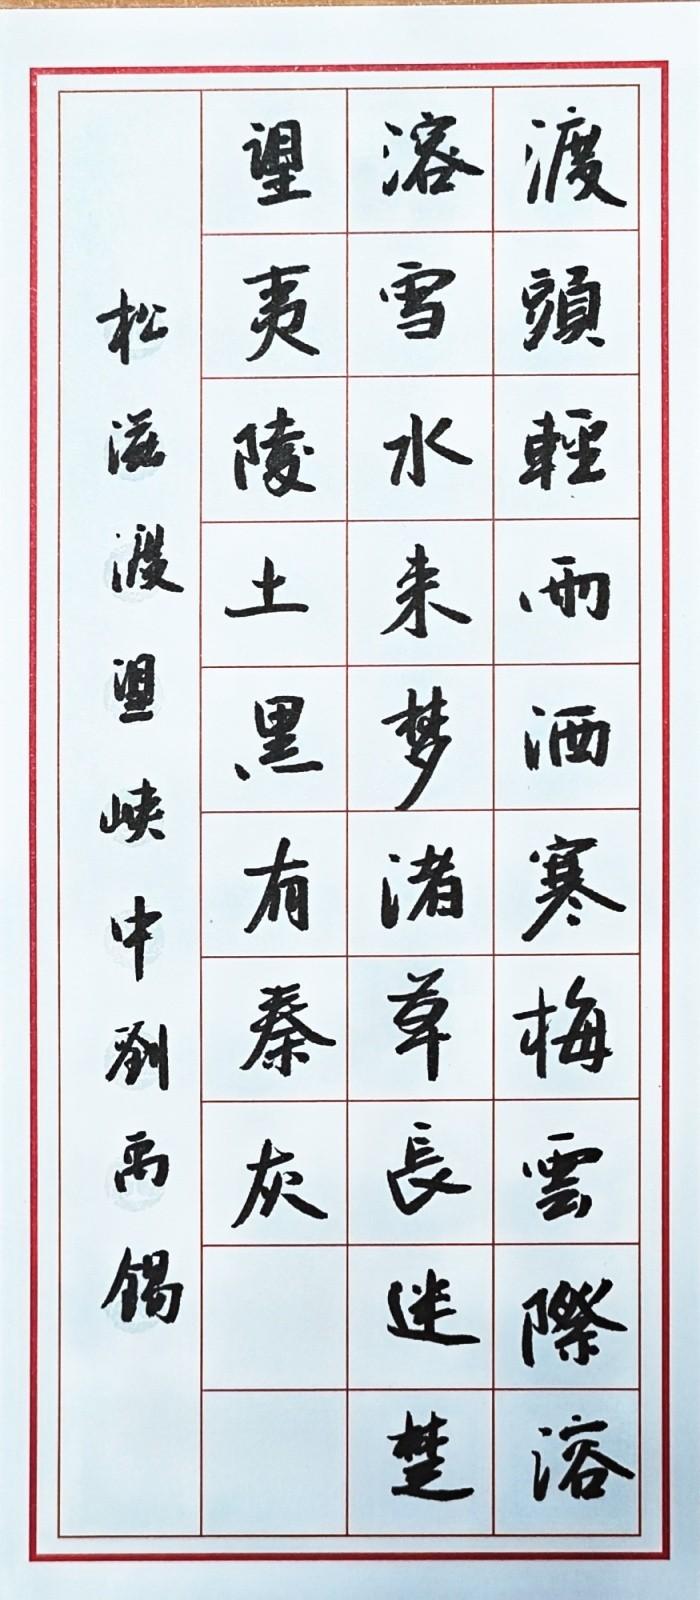 渡頭輕雨洒寒梅雲際溶
溶雪水来梦渚草長迷楚
望夷陵土黑有秦灰
松滋渡望峡中劉禹錫